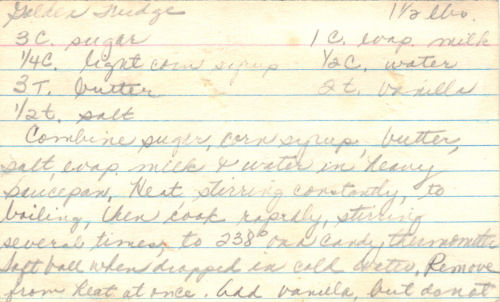 Golden Fudge 1 1/2 lbs.
3 C. sugar 1 C. evap. milk
1/4 C. light corn syrup 1/2 C. water
3 T. butter 2 t. vanilla
1/2 t. salt
Combine sugar, corn syrup, butter,
salt, evap. milk & water in heavy
saucepan, Heat, stirring constantly, to
boiling, then cook rapidly, stirring
several times, to 238° on a candy thermometer
Soft ball when dropped in cold water, Remove
from heat at once. Add vanilla, but do not